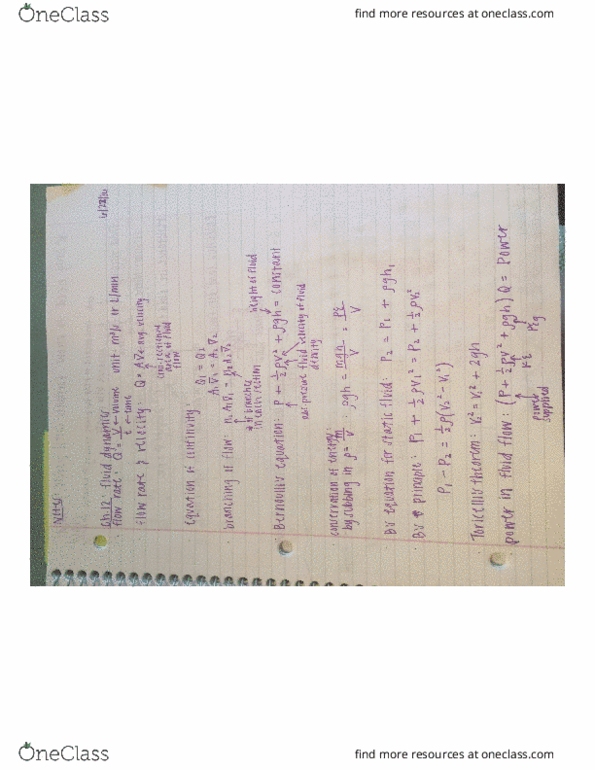 OneClass
find more resources at oneclass.com
Notes
Ch. 12: fluid dynamics
flow rate: Q = V/t ← volume ← time unit: m³/s or L/min
flow rate & velocity: Q = Av̄ ← avg. velocity
cross-sectional area of fluid flow
Equation of continuity:
Q₁ = Q₂
A₁v̄₁ = A₂v̄₂
branching of flow: n₁A₁v̄₁ = n₂A₂v̄₂
# of branches in each section
Bernoulli's equation: P + ½ρv² + ρgh = constant
height of fluid
abs. pressure fluid velocity of fluid
density
conservation of energy
by subbing in ρ = m/V : ρgh = mgh/V = PE/V
BV equation for static fluid: P₂ = P₁ + ρgh₁
BV principle: P₁ + ½ρv₁² = P₂ + ½ρv₂²
P₁ − P₂ = ½ρ(v₂² − v₁²)
Toricelli's theorem: v₂² = v₁² + 2gh
power in fluid flow: (P + ½ρv² + ρgh) Q = power
power supplied KE PEg
OneClass
find more resources at oneclass.com